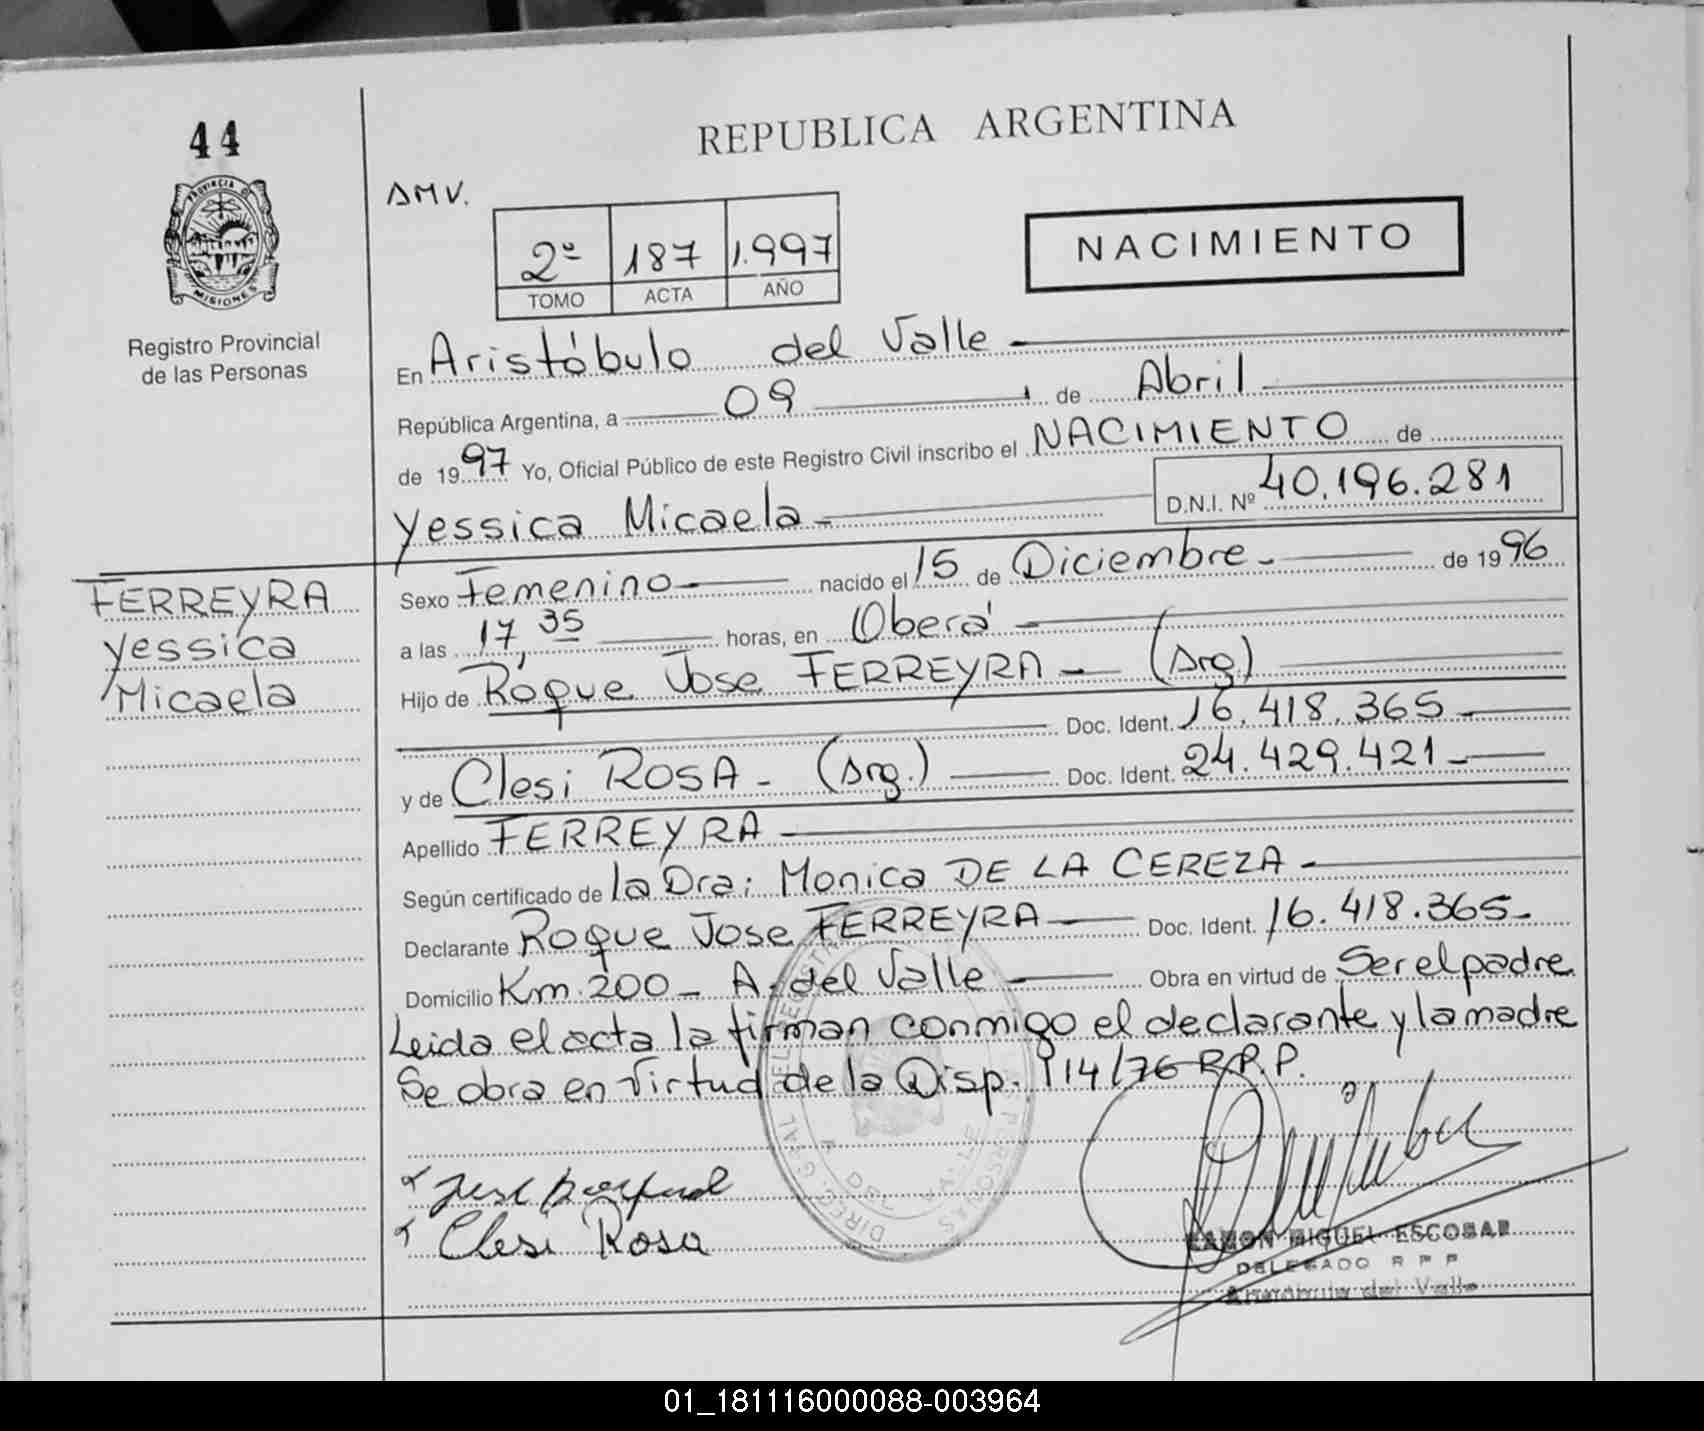 44
REPUBLICA ARGENTINA
PROVINCIA DE
MISIONES
Registro Provincial
de las Personas
AMV.
2º 187 1.997
TOMO ACTA AÑO
NACIMIENTO
En Aristóbulo del Valle
República Argentina, a 09 de Abril
de 1997 Yo, Oficial Público de este Registro Civil inscribo el NACIMIENTO de
Yessica Micaela D.N.I. Nº 40.196.281
FERREYRA
Yessica
Micaela
Sexo Femenino nacido el 15 de Diciembre de 1996
a las 17,35 horas, en Oberá
Hijo de Roque Jose FERREYRA (Arg)
Doc. Ident. 16.418.365
y de Clesi ROSA - (Arg.) Doc. Ident. 24.429.421
Apellido FERREYRA
Según certificado de la Dra: Monica DE LA CEREZA
Declarante Roque Jose FERREYRA Doc. Ident. 16.418.365
Domicilio Km. 200 - A. del Valle Obra en virtud de Ser el padre
Leida el acta la firman conmigo el declarante y la madre
Se obra en virtud de la Disp. 114/76 R.P.P.
Clesi Rosa
RAMON MIGUEL ESCOBAR
DELEGADO R P P
Aristóbulo del Valle
01_181116000088-003964